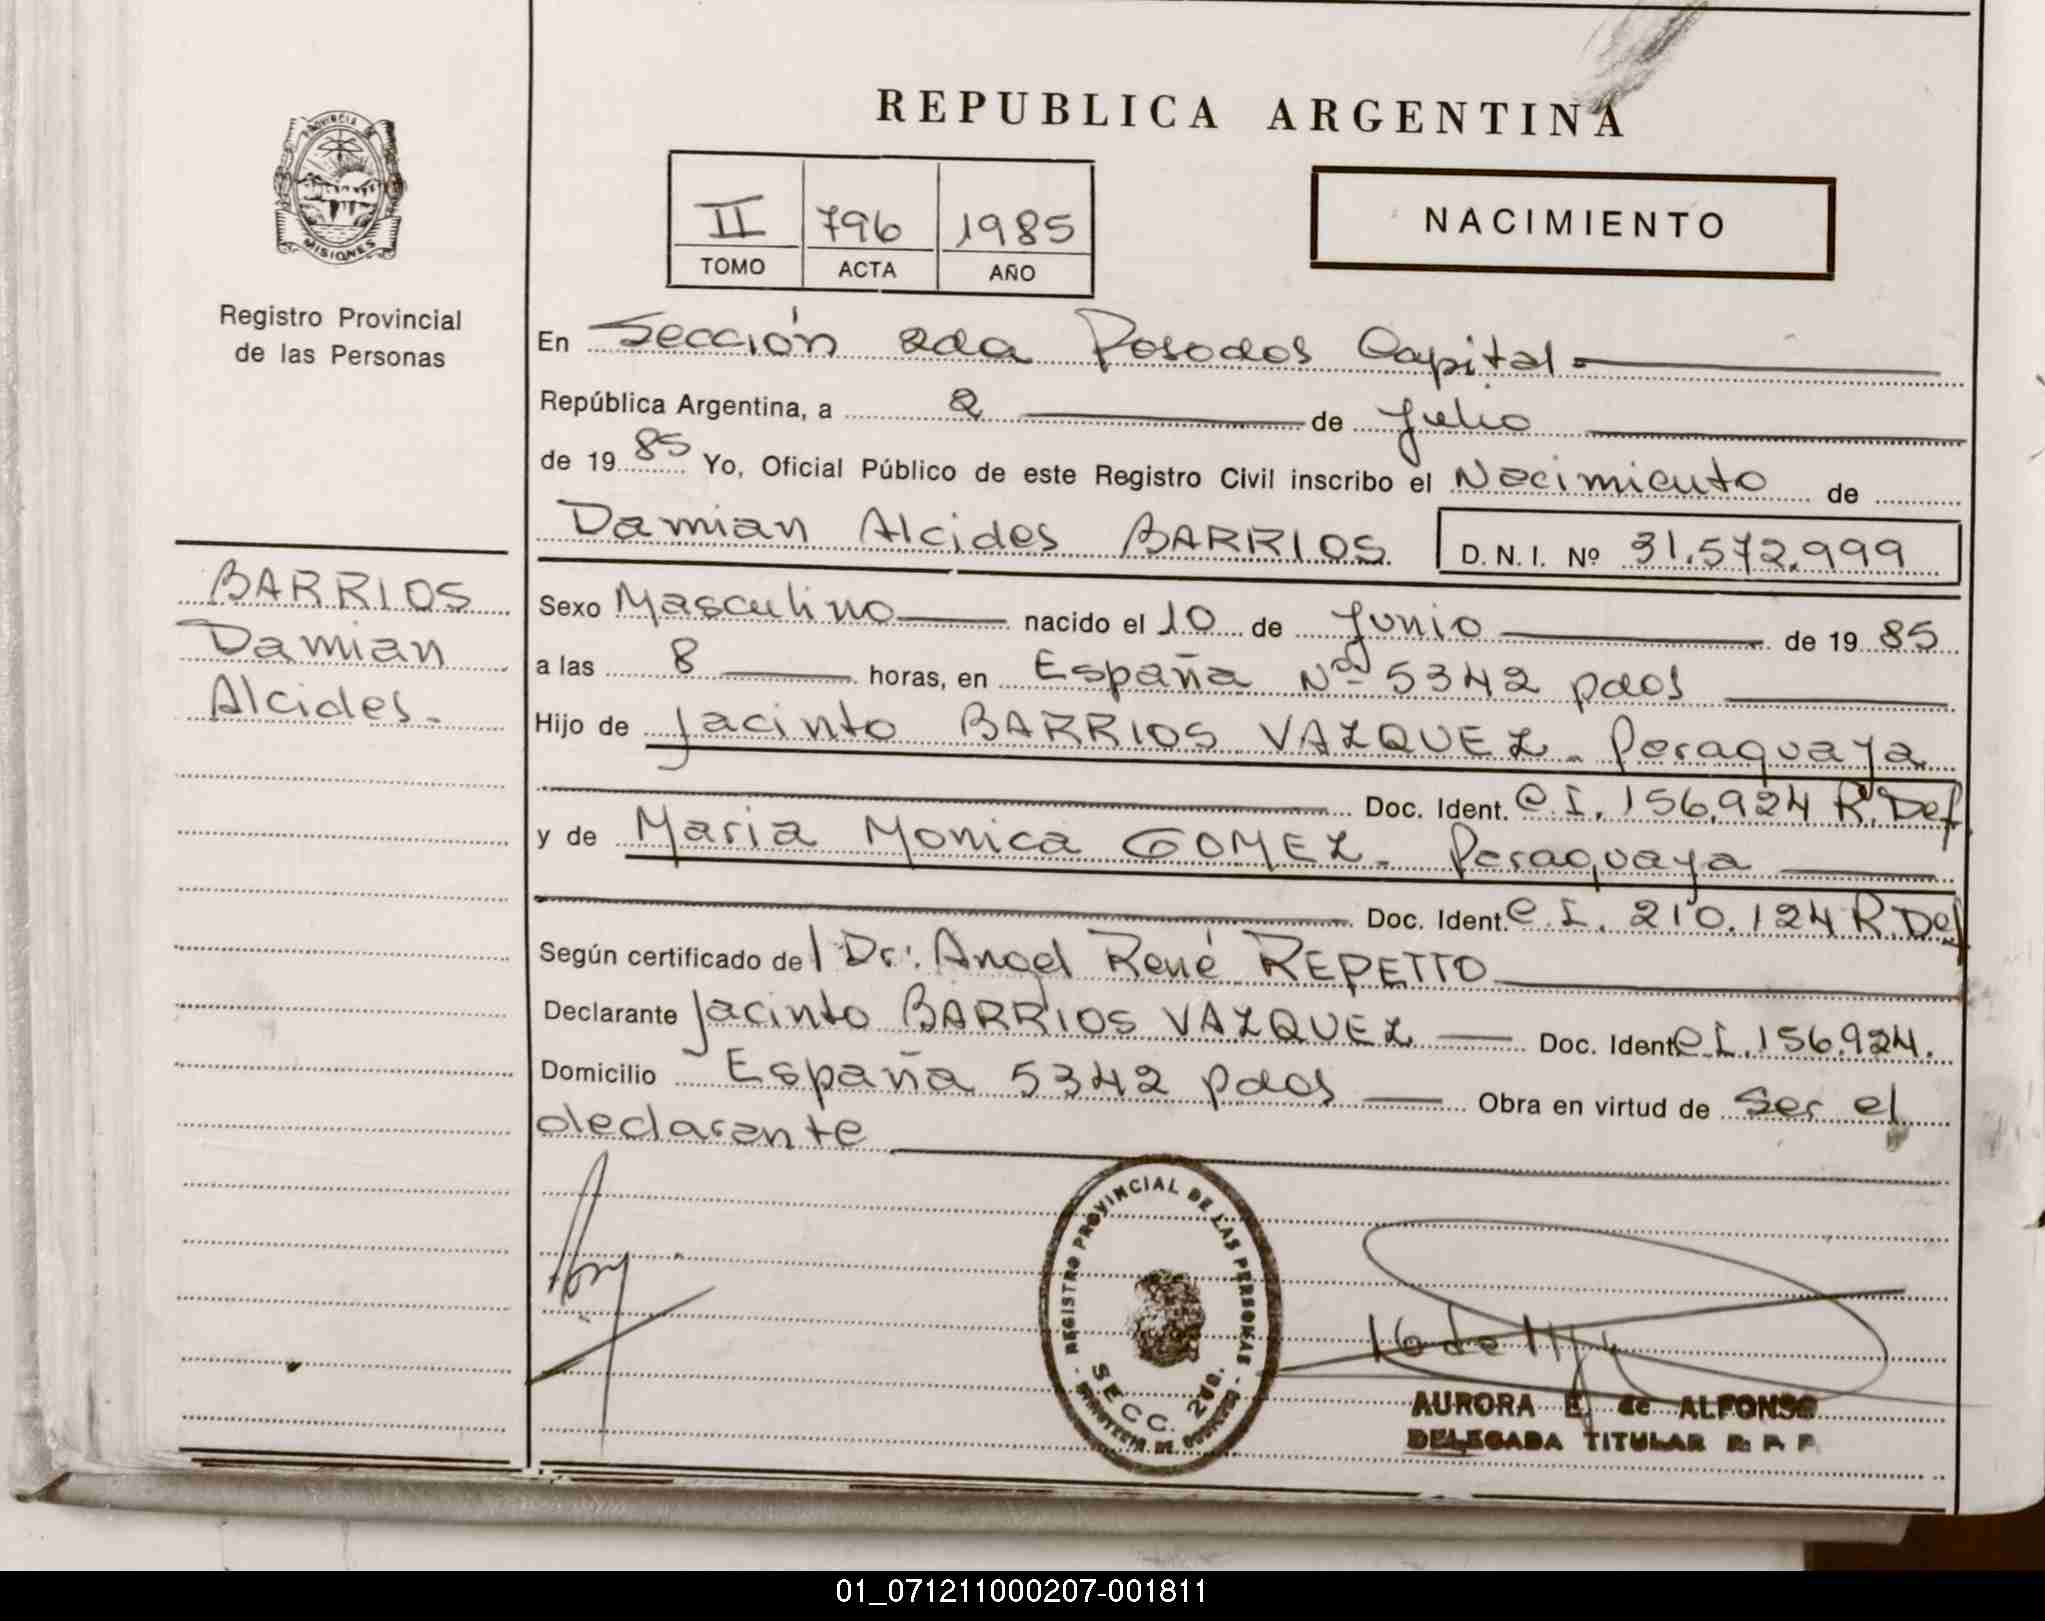 REPUBLICA ARGENTINA
PROVINCIA DE
MISIONES
Registro Provincial
de las Personas
II 796 1985
TOMO ACTA AÑO
NACIMIENTO
En Sección 2da Posadas Capital
República Argentina, a 2 de Julio
de 1985 Yo, Oficial Público de este Registro Civil inscribo el Nacimiento de
Damian Alcides BARRIOS. D. N. I. Nº 31.572.999
BARRIOS
Damian
Alcides.
Sexo Masculino nacido el 10 de Junio de 19 85
a las 8 horas, en España Nº 5342 pdas
Hijo de Jacinto BARRIOS VAZQUEZ. Paraguaya
Doc. Ident. C.I. 156.924 R. Def
y de Maria Monica GOMEZ. Paraguaya
Doc. Ident. C.I. 210.124 R. Def
Según certificado del Dr: Angel René REPETTO
Declarante Jacinto BARRIOS VAZQUEZ Doc. Ident C.I. 156.924.
Domicilio España 5342 pdas Obra en virtud de Ser el
declarante
REGISTRO PROVINCIAL DE LAS PERSONAS
SECC. 2da.
AURORA E. de ALFONSO
DELEGADA TITULAR R. P. P.
01_071211000207-001811